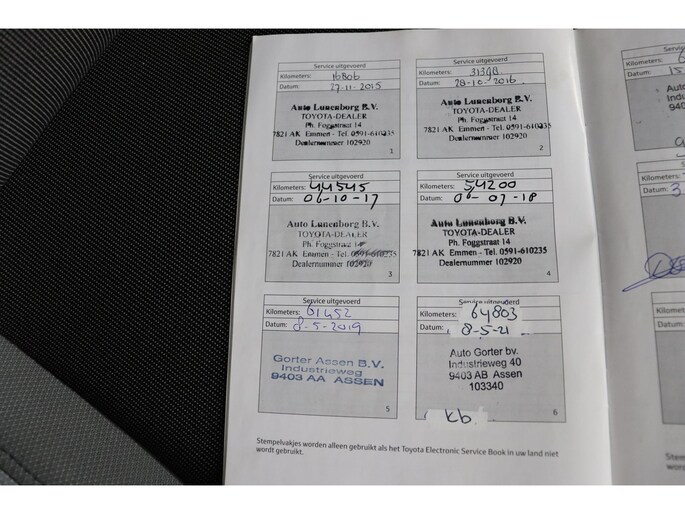 Service uitgevoerd
Kilometers: 16806
Datum: 27-11-2015
Auto Lunenborg B.V.
TOYOTA-DEALER
Ph. Foggstraat 14
7821 AK Emmen - Tel. 0591-610235
Dealernummer 102920
1
Service uitgevoerd
Kilometers:
Datum: 28-10-2016
Auto Lunenborg B.V.
TOYOTA-DEALER
Ph. Foggstraat 14
7821 AK Emmen - Tel. 0591-610235
Dealernummer 102920
2
Service uitgevoerd
Kilometers: 44545
Datum: 06-10-17
Auto Lunenborg B.V.
TOYOTA-DEALER
Ph. Foggstraat 14
7821 AK Emmen - Tel. 0591-610235
Dealernummer 102920
3
Service uitgevoerd
Kilometers: 54200
Datum: 06-07-18
Auto Lunenborg B.V.
TOYOTA-DEALER
Ph. Foggstraat 14
7821 AK Emmen - Tel. 0591-610235
Dealernummer 102920
4
Service uitgevoerd
Kilometers: 61452
Datum: 8-5-2019
Gorter Assen B.V.
Industrieweg
9403 AA ASSEN
5
Service uitgevoerd
Kilometers: 64803
Datum: 8-5-21
Auto Gorter bv.
Industrieweg 40
9403 AB Assen
103340
kb
6
Stempelvakjes worden alleen gebruikt als het Toyota Electronic Service Book in uw land niet
wordt gebruikt.
Kilometers:
Datum: 15
Auto
Indus
940
Kilometer
Datum: 3
Kilom
Datum